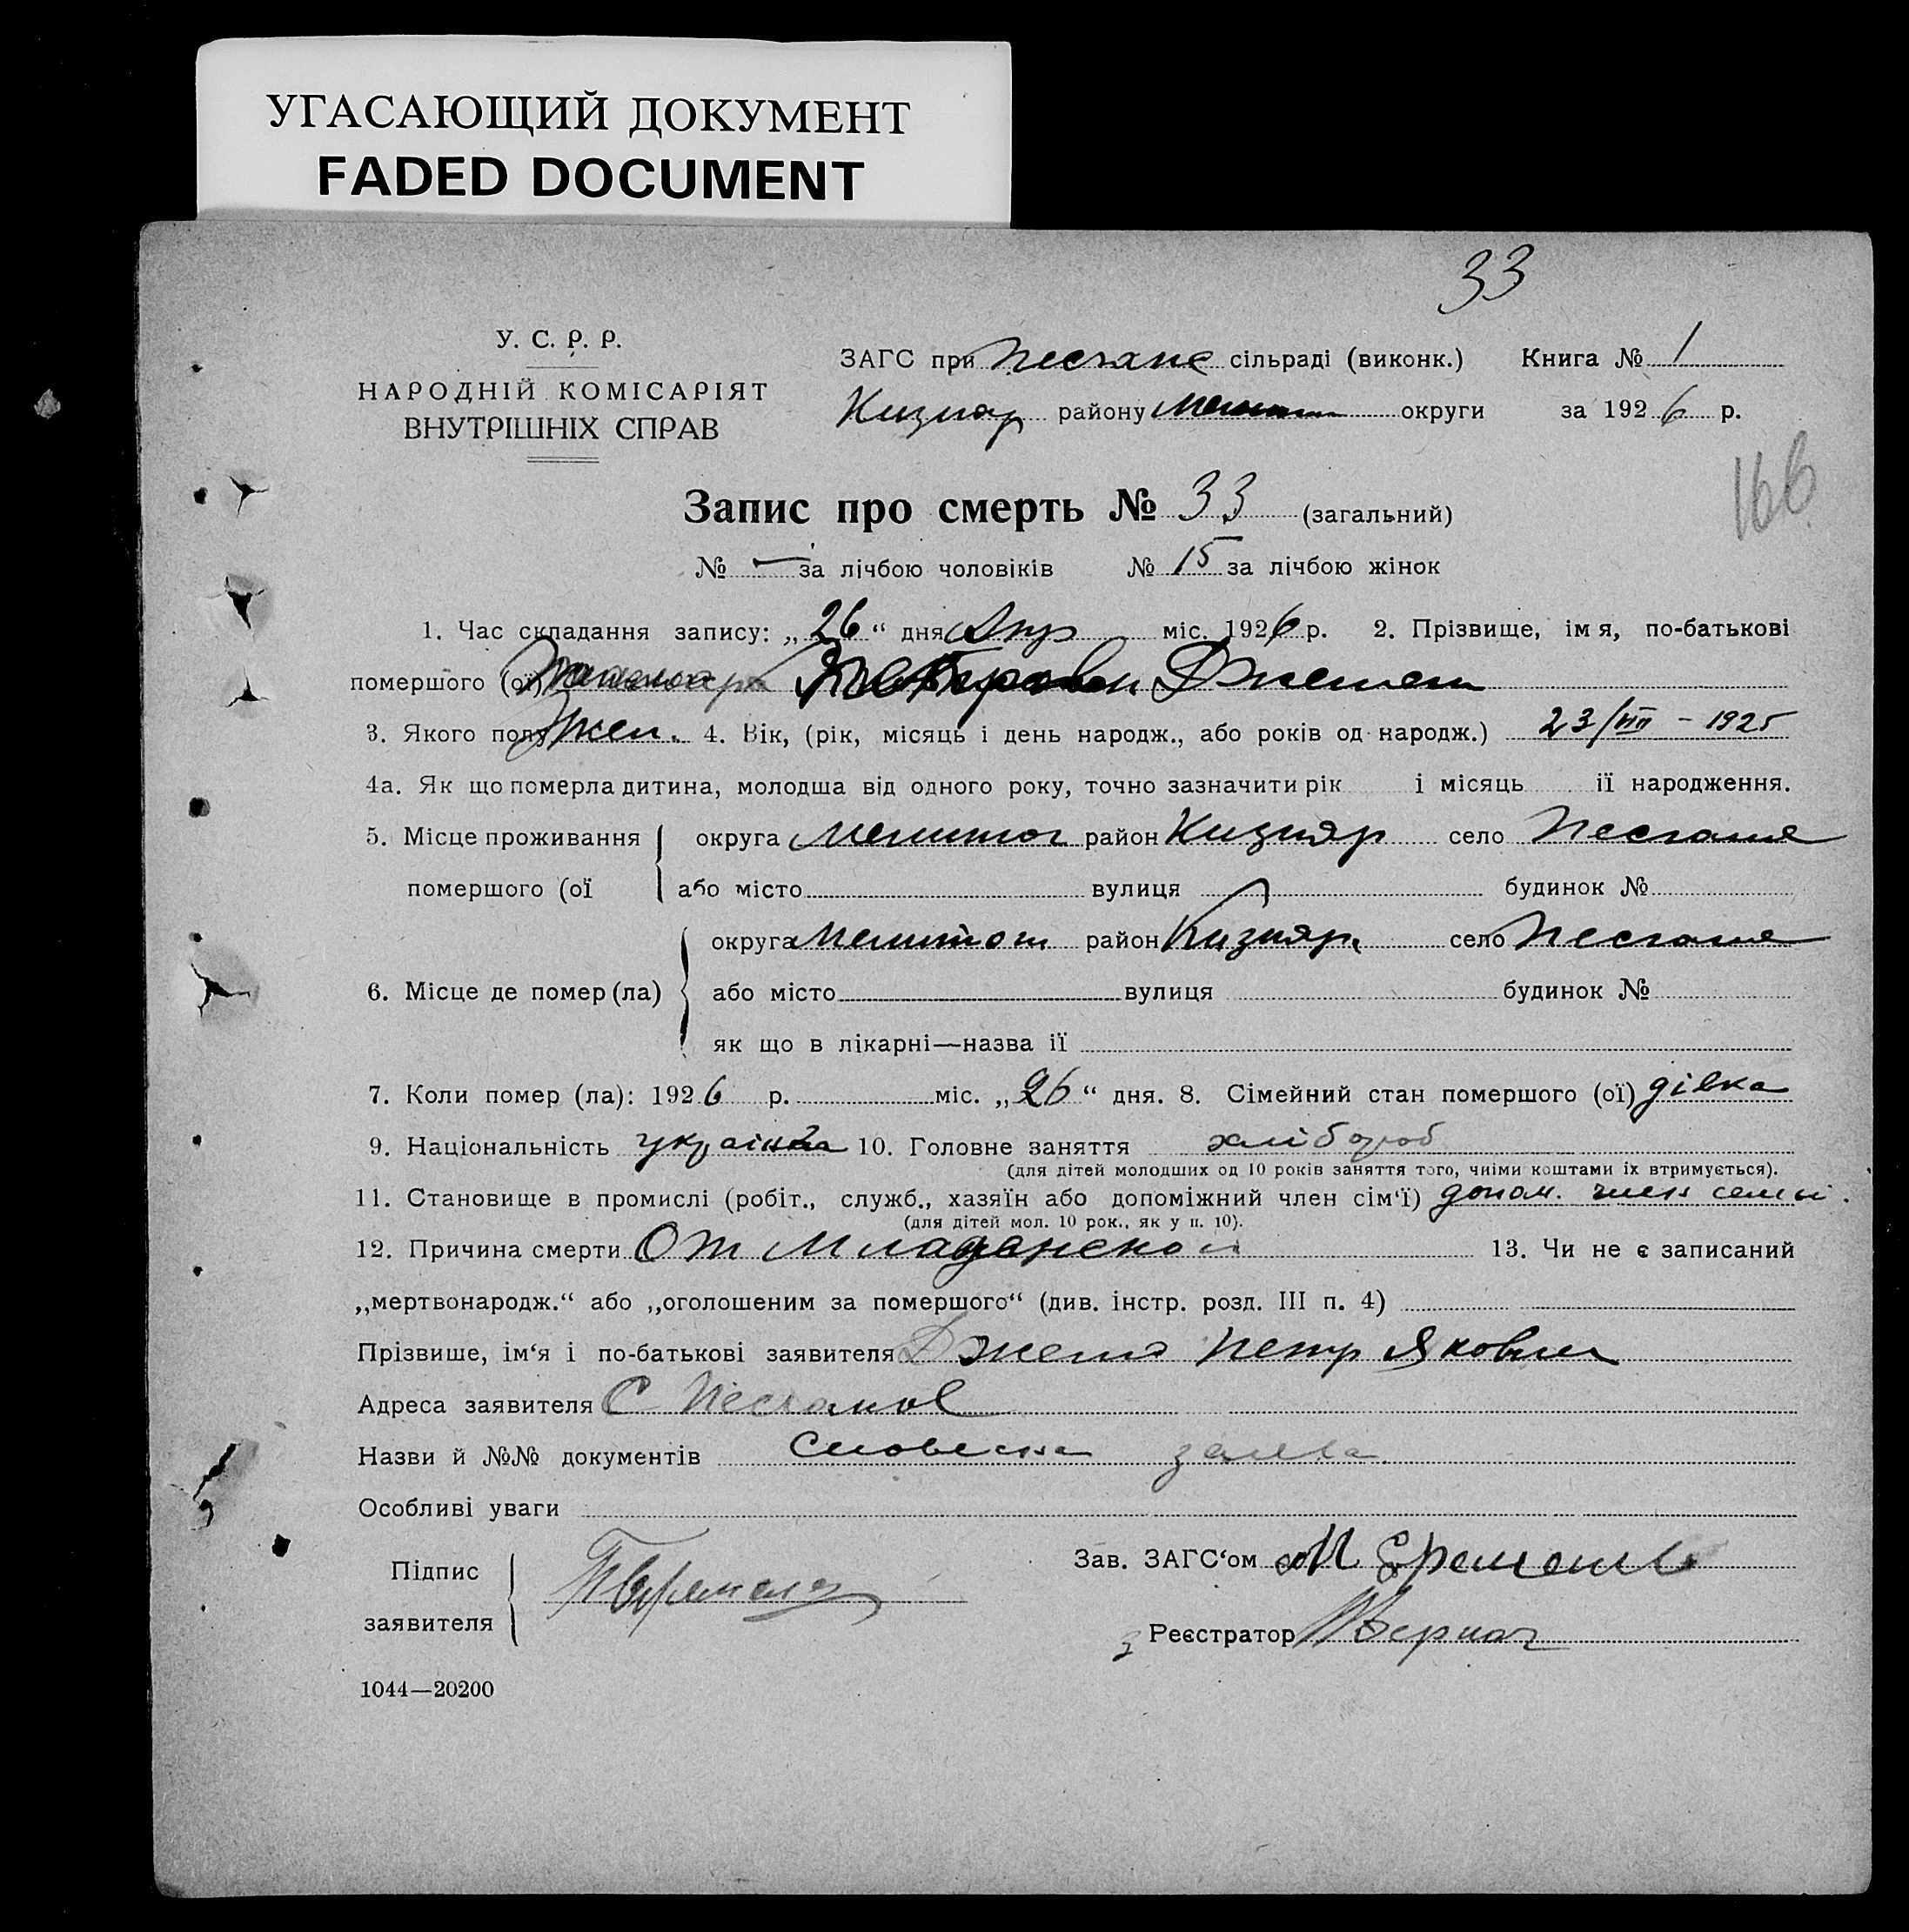 УГАСАЮЩИЙ ДОКУМЕНТ
FADED DOCUMENT
33
У. С. Р. Р.
НАРОДНІЙ КОМІСАРІЯТ
ВНУТРІШНІХ СПРАВ
ЗАГС при Песчане сільраді (виконк.) Книга № 1
Кизияр району округи за 1926 р.
166
Запис про смерть № 33 (загальний)
№ — за лічбою чоловіків № 15 за лічбою жінок
1. Час складання запису: „26“ дня Апр міс. 1926 р. 2. Прізвище, імя, по-батькові
помершого (ої)
3. Якого полу жен. 4. Вік, (рік, місяць і день народж., або років од народж.) 23/VIII – 1925
4а. Як що померла дитина, молодша від одного року, точно зазначити рік і місяць її народження.
5. Місце проживання округа Мелитоп район Кизияр село Песчане
помершого (ої або місто вулиця будинок №
округа Мелитоп район Кизияр село Песчане
6. Місце де помер (ла) або місто вулиця будинок №
як що в лікарні—назва її
7. Коли помер (ла): 1926 р. міс. „26“ дня. 8. Сімейний стан помершого (ої) дівка
9. Національність 10. Головне заняття хлібороб
(для дітей молодших од 10 років заняття того, чиїми коштами їх втримується).
11. Становище в промислі (робіт., служб., хазяїн або допоміжний член сім‘ї) допом. член семьи.
(для дітей мол. 10 рок., як у п. 10).
12. Причина смерти От Младенской 13. Чи не є записаний
„мертвонародж.“ або „оголошеним за помершого“ (див. інстр. розд. III п. 4)
Прізвише, ім‘я і по-батькові заявителя Петр Яковлев
Адреса заявителя С Песчаное
Назви й №№ документів словесна заява
Особливі уваги
Підпис
заявителя
Зав. ЗАГС‘ом
Реєстратор
1044—20200